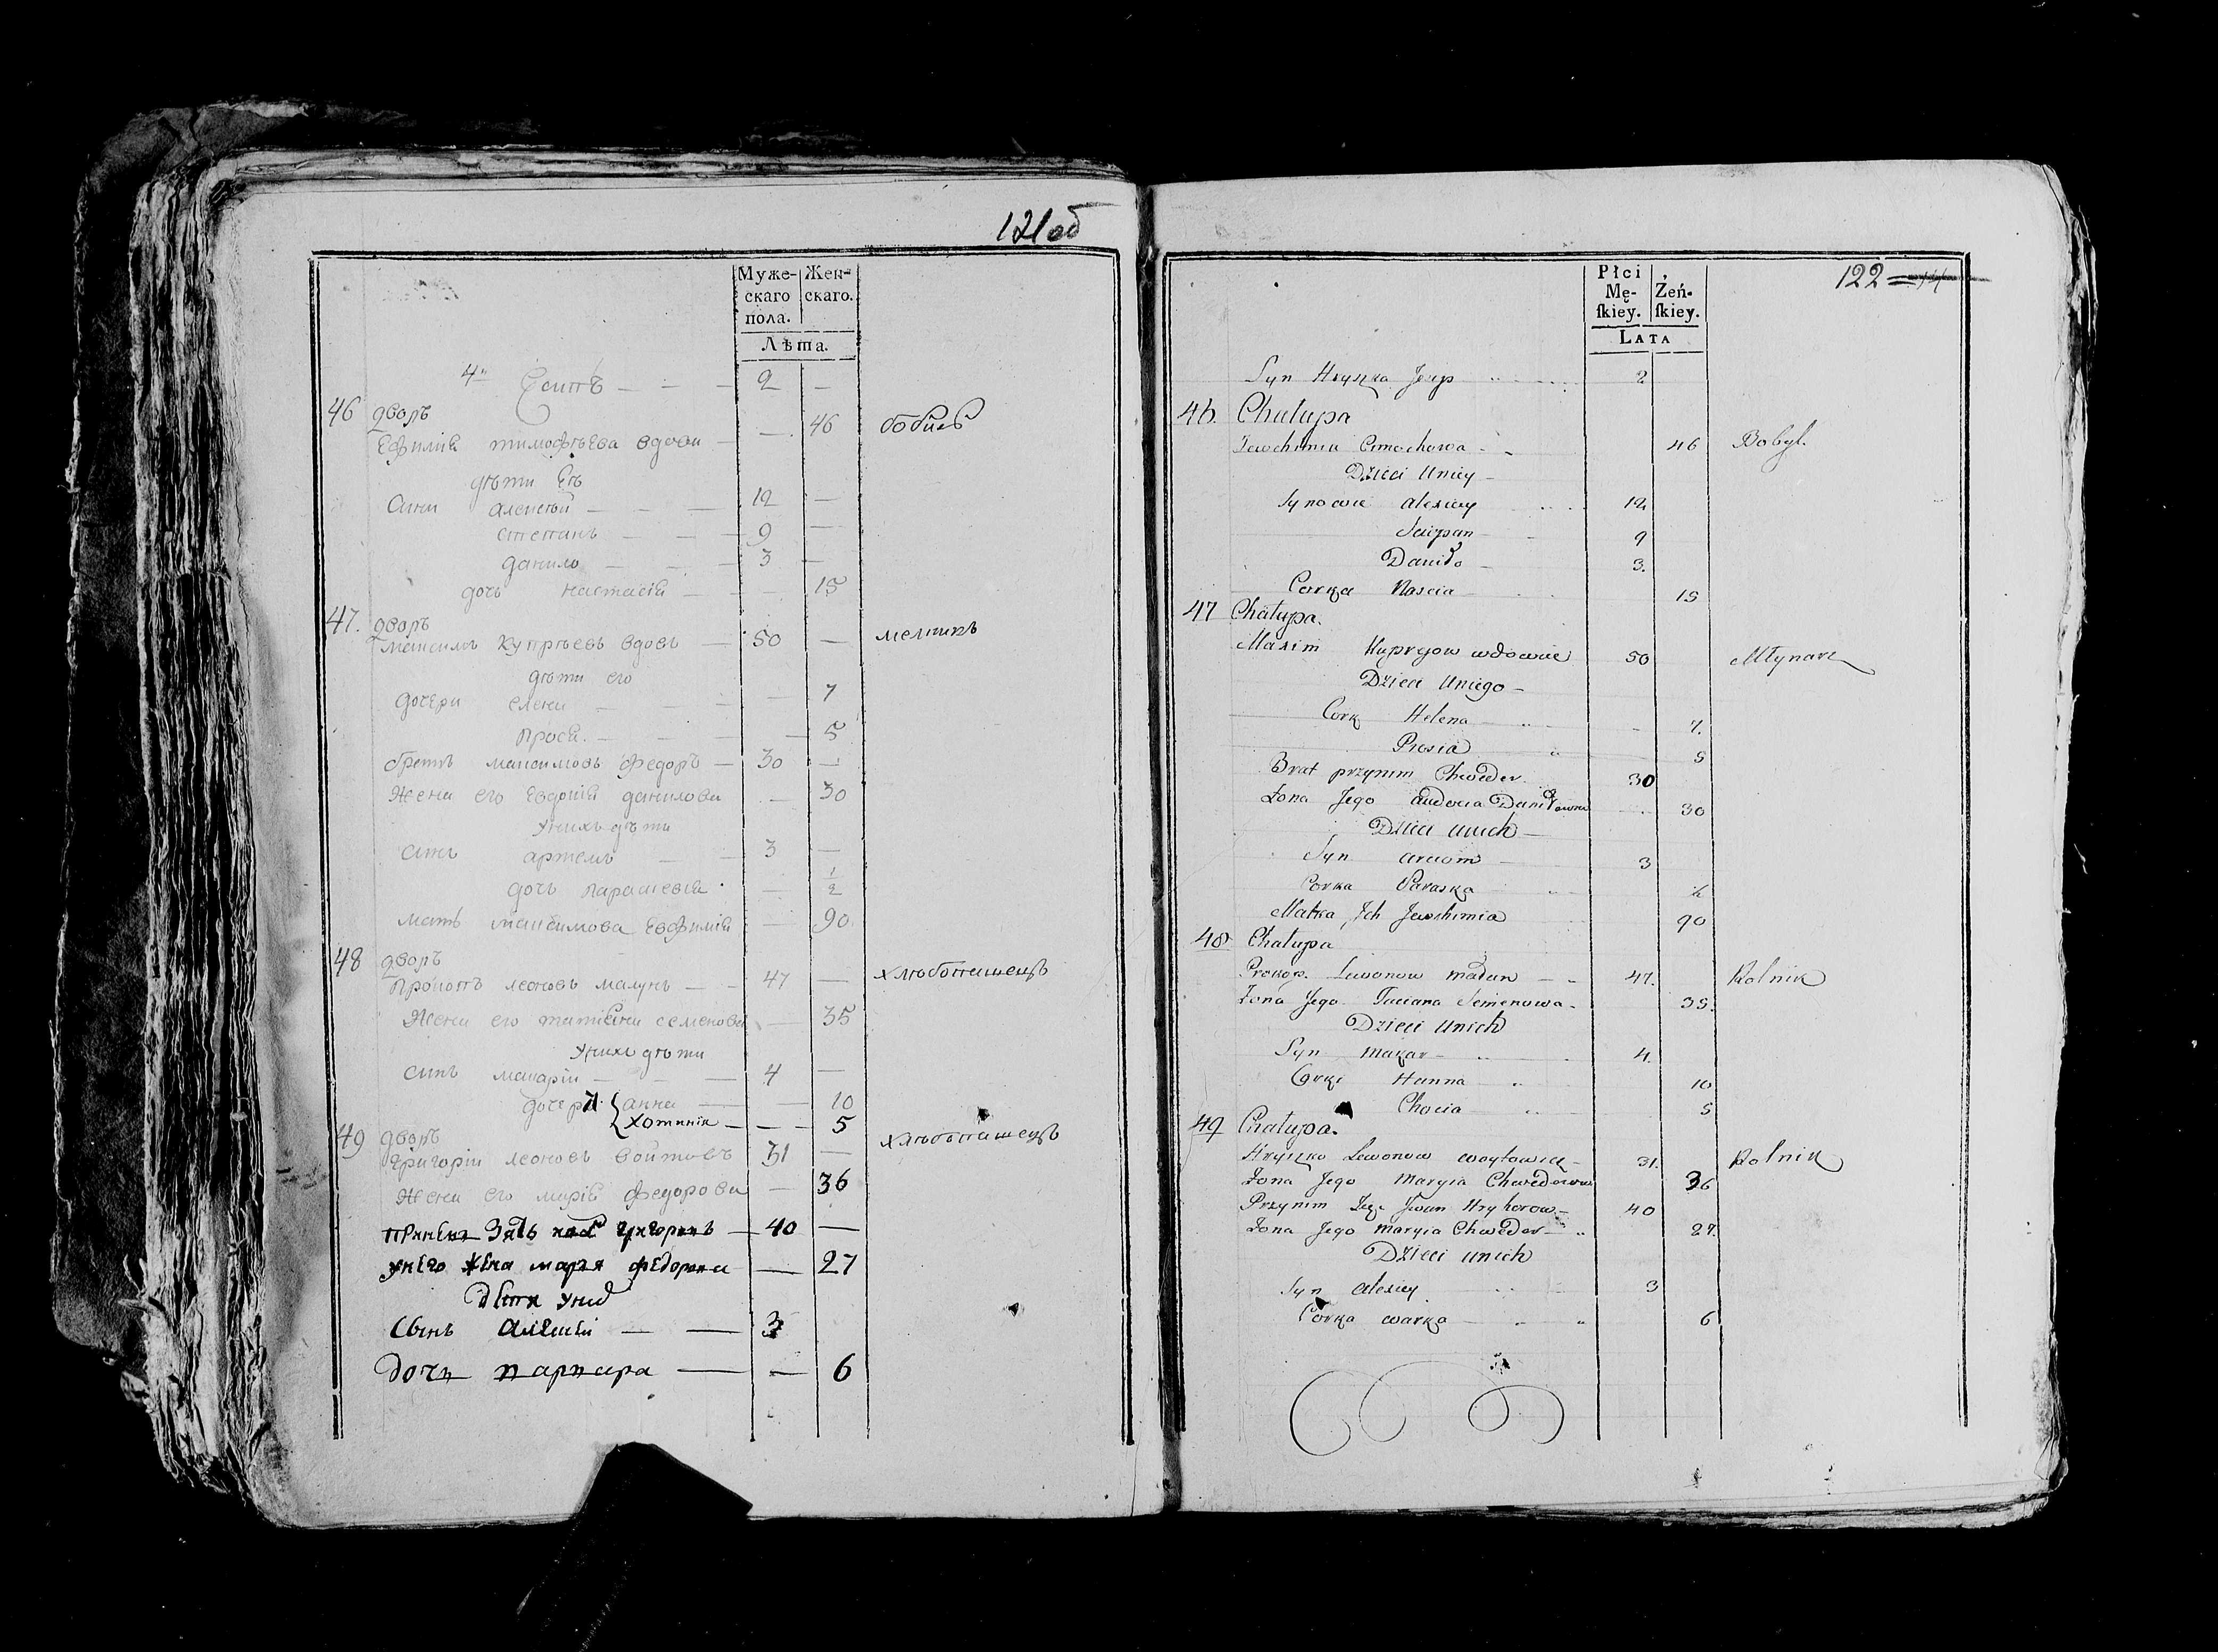 121об
Муже- Жен-
скаго скаго.
пола.
Лѣта.
4й Есипъ — 2 —
46 дворъ
Ефимiя тимофѣева вдова — 46 бобиль
дѣти Еѣ
сини алексѣй — 12 —
степанъ — 9 —
данило — 3 —
дочь настасiя — — 15
47. дворъ
максимъ купрѣевъ вдовъ — 50 — мелникъ
дѣти его
дочери елена — 7
прося. — 5
братъ максимовъ федоръ — 30 —
жена его Евдокiя данилова — 30
Унихъ дѣти
синъ артемъ — 3 —
дочь параскевiя — 1/2
мать максимова Евфимiя — 90
48 дворъ
прокопъ леоновъ малунъ — 47 — хлѣбопашецъ
Жена его татiяна семенова — 35
Унихъ дѣти
синъ макарiи — 4 —
дочери анна — 10
хотинiя — 5
49 дворъ
григорiи леоновъ войтовъ 31 — хлѣбопашецъ
жена его марiя федорова — 36
зять 40 —
унего жена маря федорова — 27
дѣти
сынъ алексѣй — 3
дочь варвара — 6
122 14
Płci Żeń-
Mę- ſkiey.
ſkiey.
LATA
Syn Hryszka Jesyp 2
46. Chałupa
Jewchimia Cimochowa 46 Bobyl.
Dzieci Uniey
Synowie Alexiey 12
Sciepan 9
Daniło 3.
Corka Nascia 15
47 Chałupa.
Maxim Kupryow wdowiec 50 Młynarz
Dzieci Uniego
Corki Helena 7.
Prosia 5
Brat przynim Chwedor 30
Żona Jego Audocia Daniłowna 30
Dzieci Unich
Syn Arciom 3
Corka Paraska 1/2
Matka Ich Jewchimia 90
48 Chałupa
Prokop Lewonow Małun 47. Rolnik
Żona Jego Taciana Semenowa 35.
Dzieci Unich
Syn Makar 4.
Corki Hanna 10
Chocia 5
49 Chałupa.
Hryszko Lewonow Woytowicz 31. Rolnik
Żona Jego Maryia Chwedorowa 36
Przynim Jwan Hryhorow 40
Żona Jego Maryia Chwedor 27.
Dzieci Unich
Syn Alexiey 3
Corka Warka 6